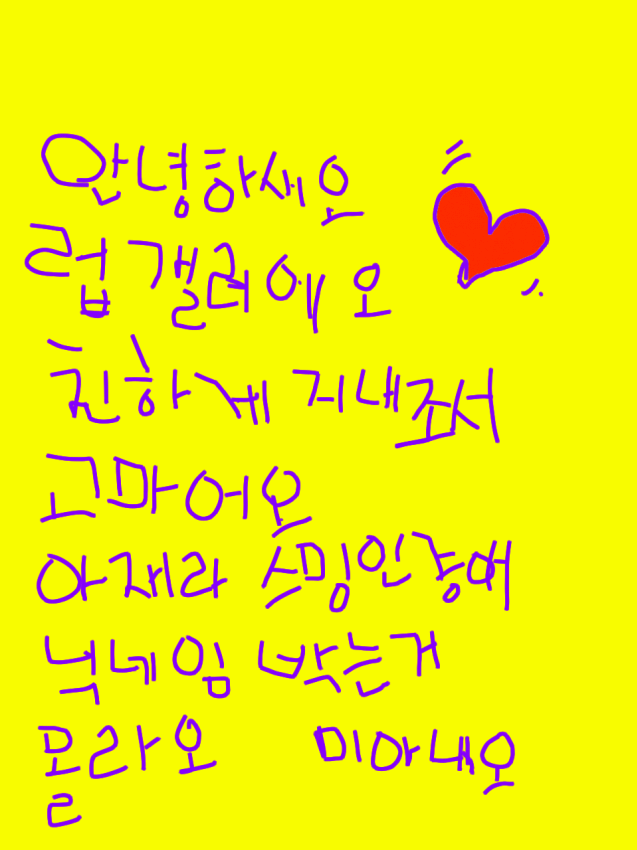 안녕하세요
럽갤러에오
친하게 지내조서
고마어요
아재라 스밍인중에
닉네임 박는거
몰라오 미아내요